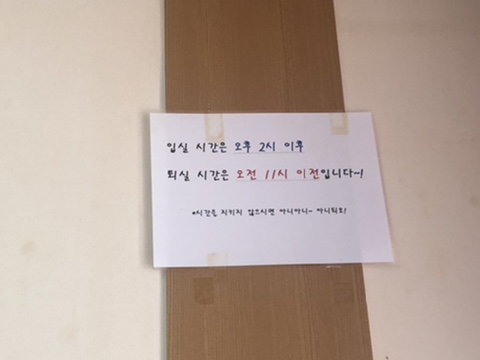 입실 시간은 오후 2시 이후
퇴실 시간은 오전 11시 이전입니다~!
*시간을 지키지 않으시면 아니아니~ 아니되오!